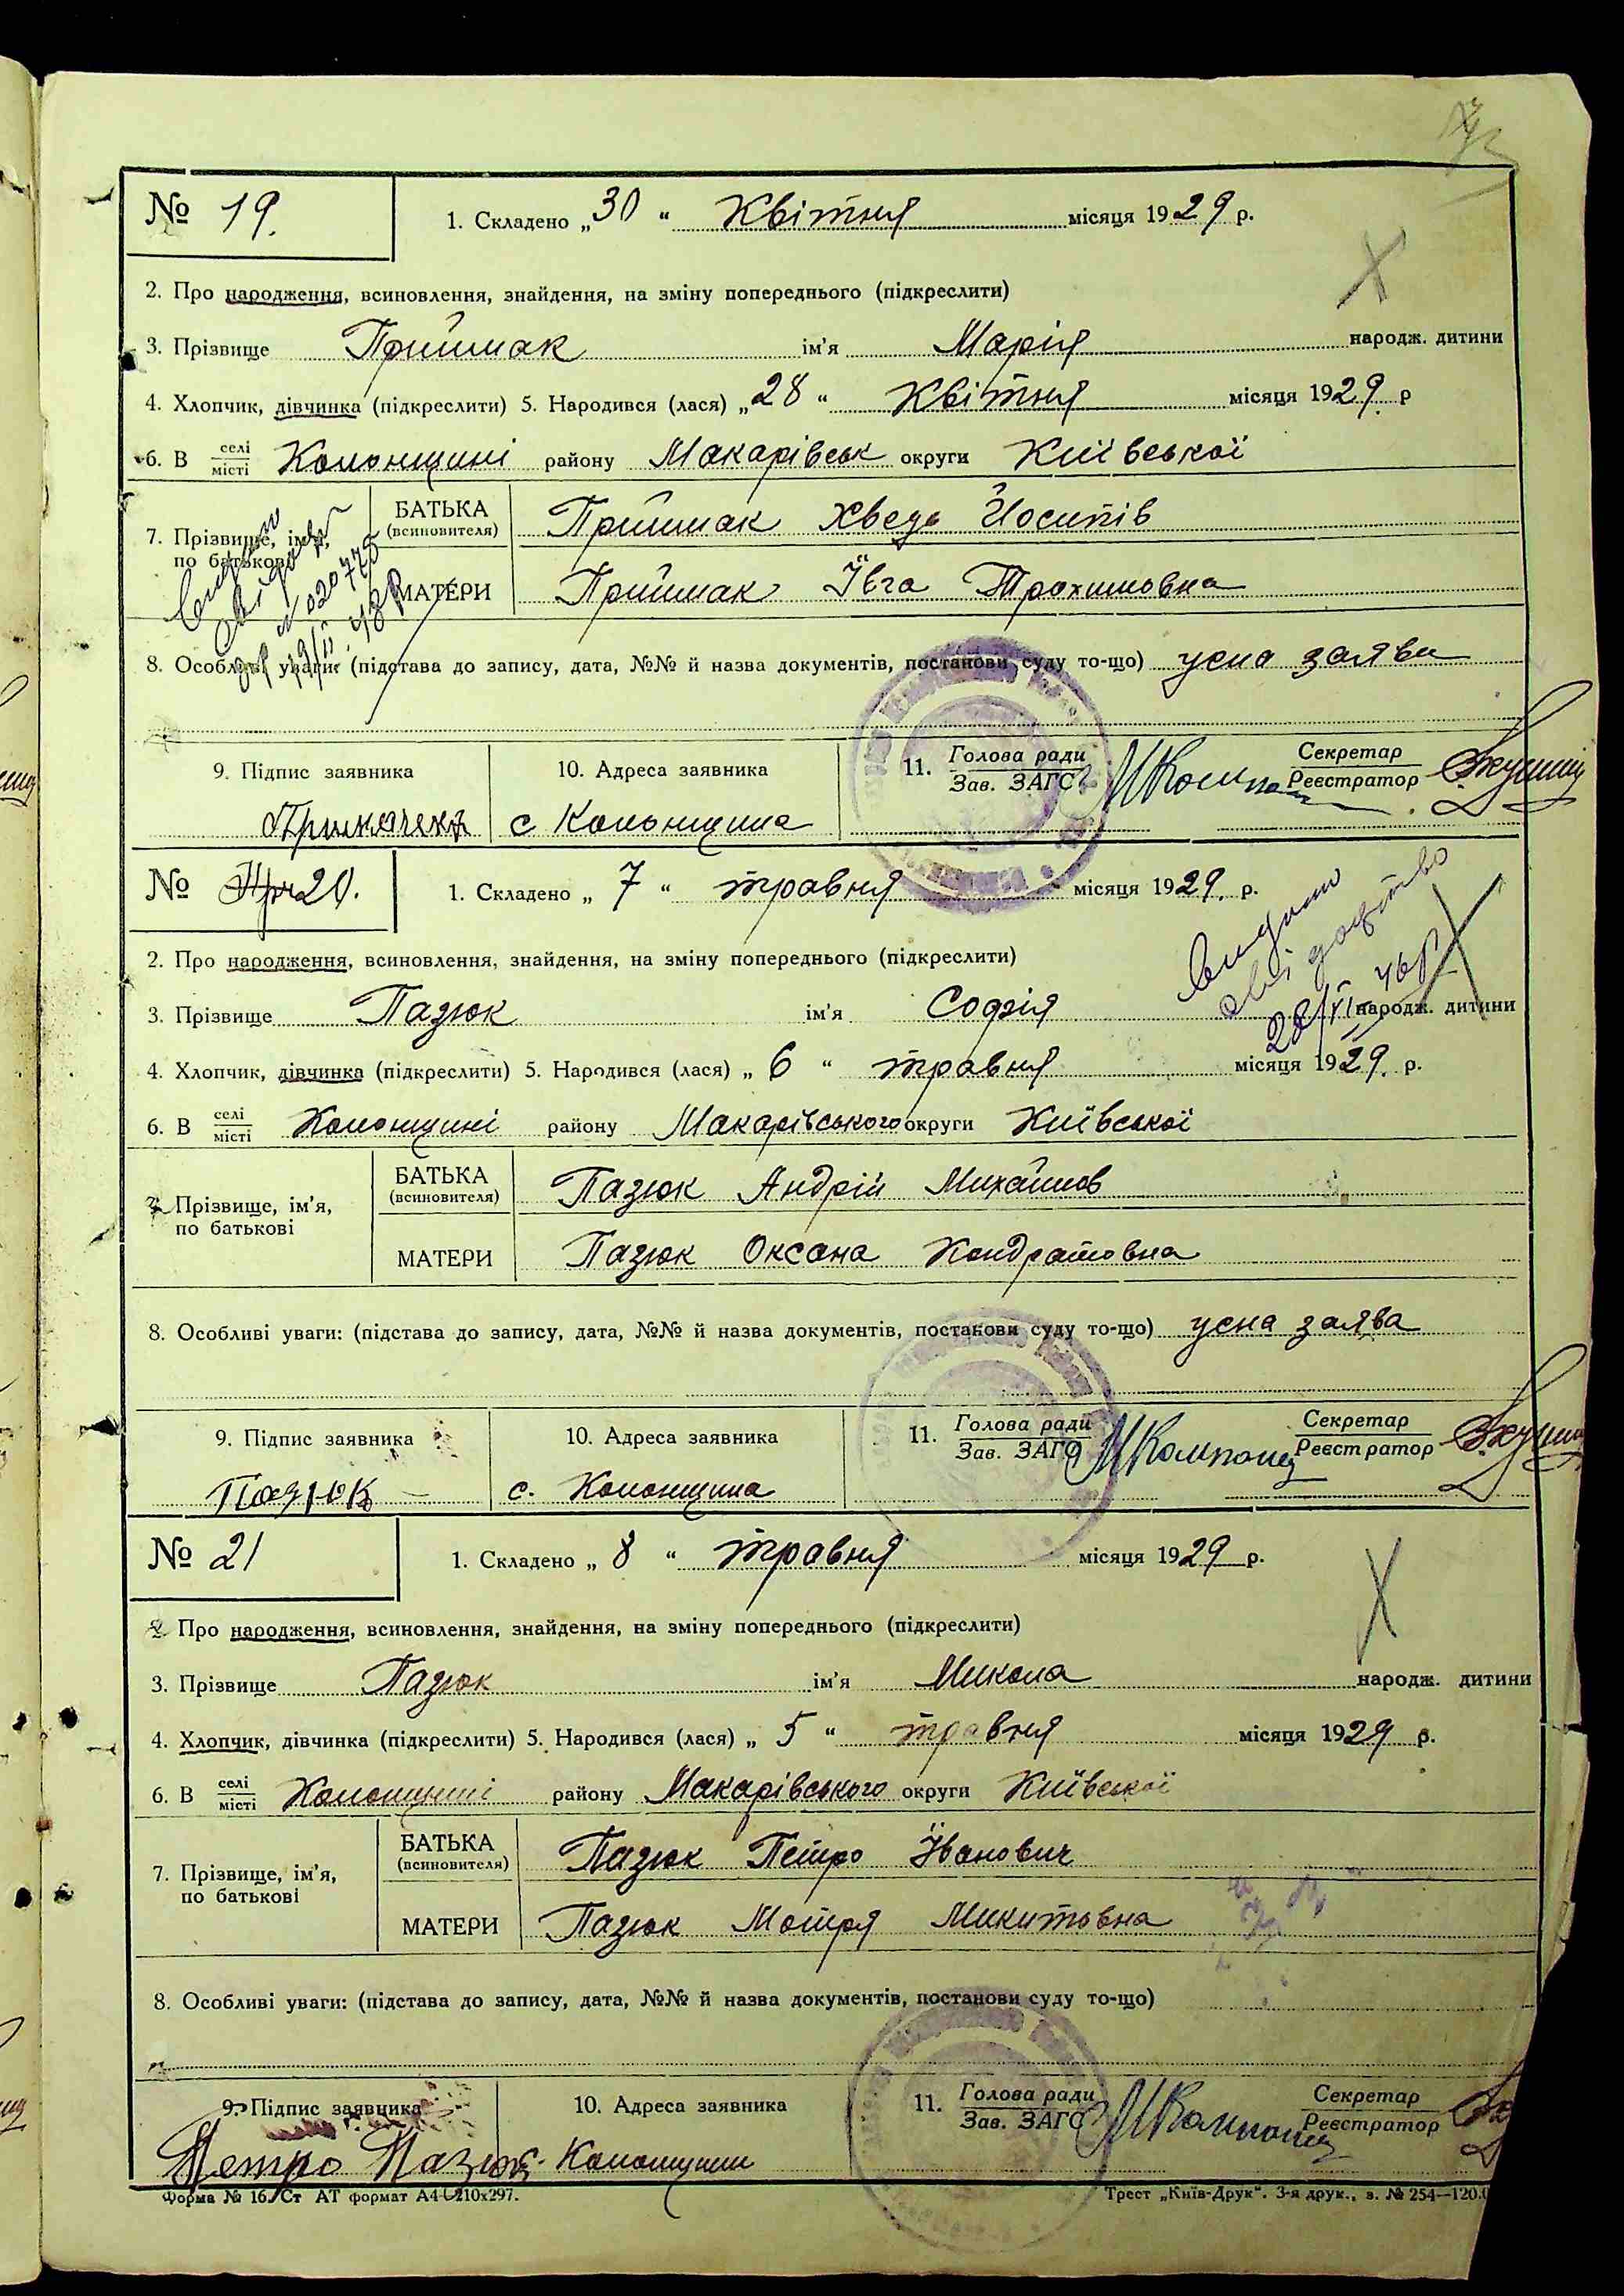 № 19.
1. Складено „30“ Квітня місяця 1929 р.
2. Про народження, всиновлення, знайдення, на зміну попереднього (підкреслити)
3. Прізвище Приймак ім'я Марія народж. дитини
4. Хлопчик, дівчинка (підкреслити) 5. Народився (лася) „28“ Квітня місяця 1929. р
6. В селі місті Колонщині району Макарівськ округи Київської
7. Прізвище, ім'я, по батькові
БАТЬКА (всиновителя) Приймак Хведь Йосипів
МАТЕРИ Приймак Ївга Трохимовна
№ 020775
8. Особливі уваги: (підстава до запису, дата, №№ й назва документів, постанови суду то-що) усна заява
9. Підпис заявника
10. Адреса заявника
с Колонщина
11. Голова ради Зав. ЗАГС
Секретар Реєстратор
№ 20.
1. Складено „7“ травня місяця 1929. р.
видано
свідоцтво
28/VI 46р
2. Про народження, всиновлення, знайдення, на зміну попереднього (підкреслити)
3. Прізвище Пазюк ім'я Софія народж. дитини
4. Хлопчик, дівчинка (підкреслити) 5. Народився (лася) „6“ травня місяця 1929. р.
6. В селі місті Колонщині району Макарівського округи Київської
7. Прізвище, ім'я, по батькові
БАТЬКА (всиновителя) Пазюк Андрій Михайлов
МАТЕРИ Пазюк Оксана Кондратовна
8. Особливі уваги: (підстава до запису, дата, №№ й назва документів, постанови суду то-що) усна заява
9. Підпис заявника
Пазюк
10. Адреса заявника
с. Колонщина
11. Голова ради Зав. ЗАГС МКомпанец
Секретар Реєстратор
№ 21
1. Складено „8“ травня місяця 1929 р.
2. Про народження, всиновлення, знайдення, на зміну попереднього (підкреслити)
3. Прізвище Пазюк ім'я Микола народж. дитини
4. Хлопчик, дівчинка (підкреслити) 5. Народився (лася) „5“ травня місяця 1929 р.
6. В селі місті Колонщині району Макарівського округи Київської
7. Прізвище, ім'я, по батькові
БАТЬКА (всиновителя) Пазюк Петро Їванович
МАТЕРИ Пазюк Мотря Микитовна
8. Особливі уваги: (підстава до запису, дата, №№ й назва документів, постанови суду то-що)
9. Підпис заявника
Петро Пазюк
10. Адреса заявника
с. Колонщини
11. Голова ради Зав. ЗАГС МКомпанец
Секретар Реєстратор
Форма № 16. Ст АТ формат А4—210x297.
Трест „Київ-Друк“. 3-я друк., з. № 254—120.0